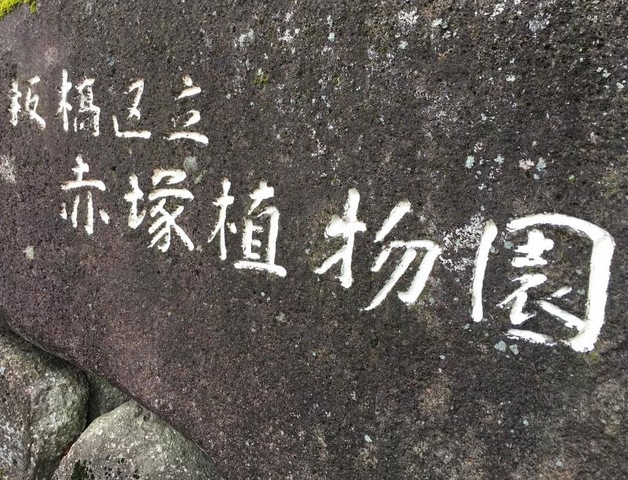 板橋区立
赤塚植物園